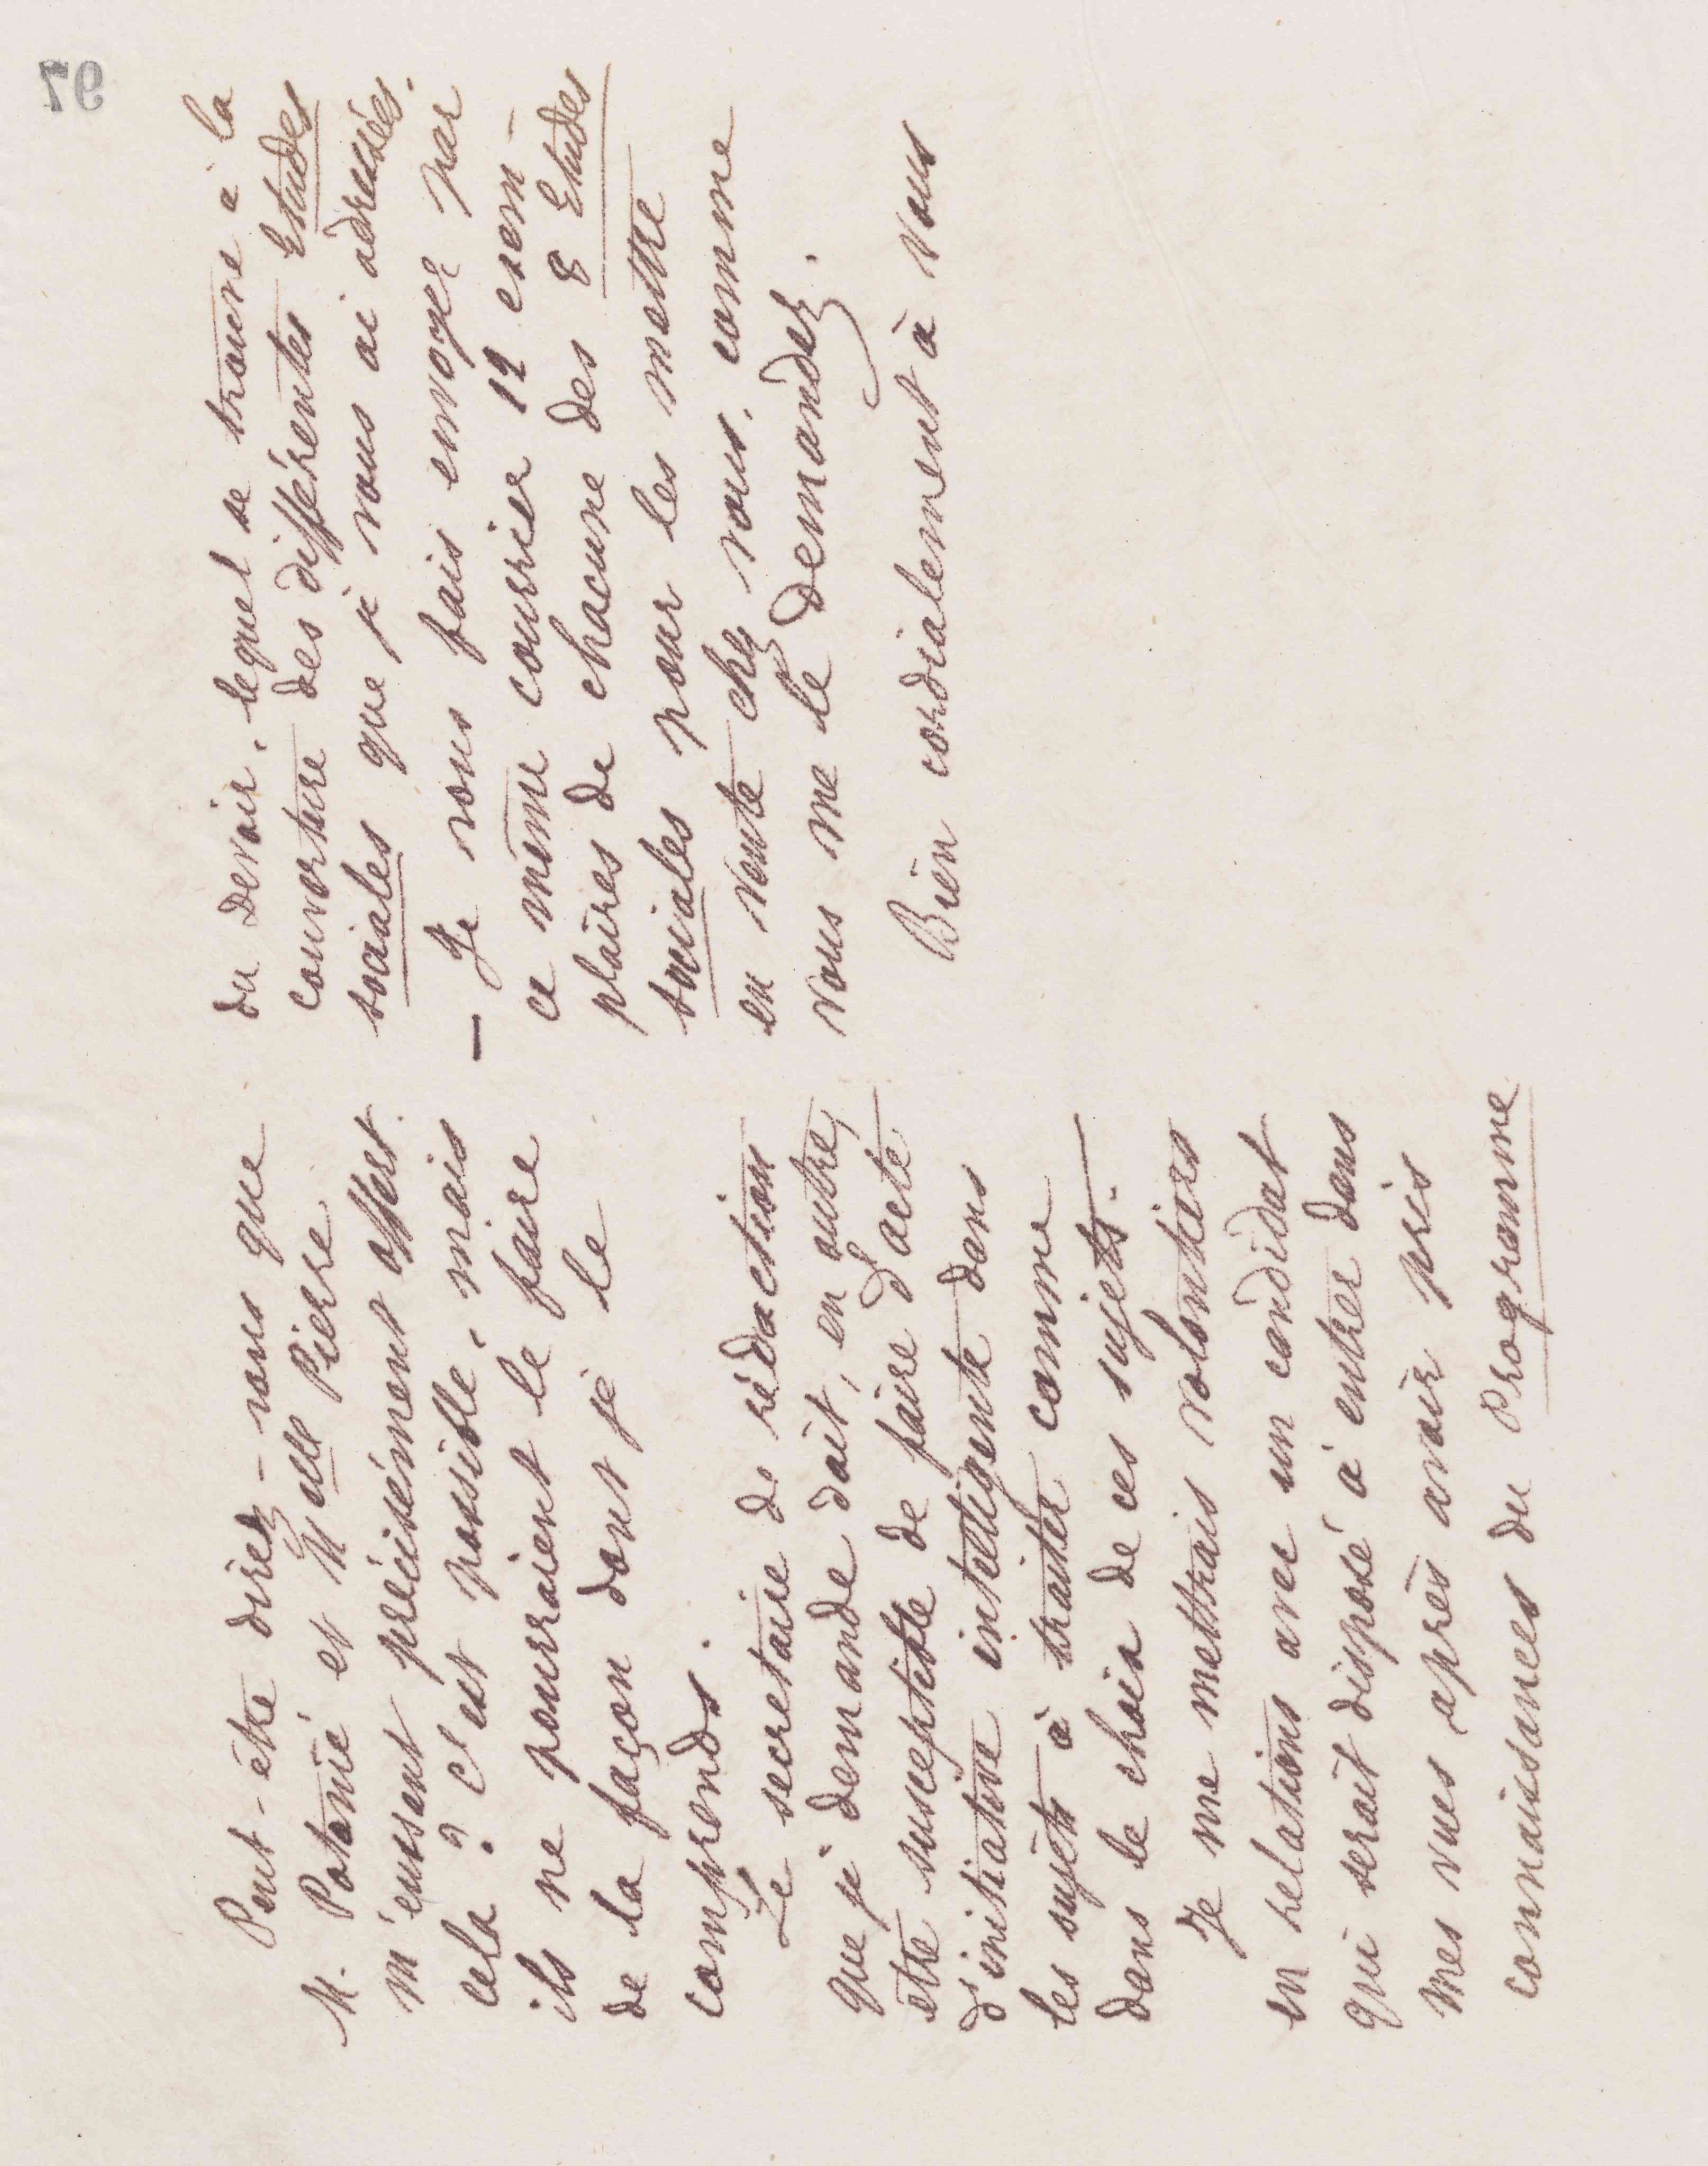 76
Peut-être direz-vous que
M. Potonié et Melle Pierre
m'eussent précisément offert
cela ? C'est possible, mais
ils ne pourraient le faire
de la façon dont je le
comprends.
Le secrétaire de rédaction
que je demande doit, en outre,
etre susceptible de faire d'acte
d'initiative intelligente dans
les sujets à traiter comme
dans le choix de ces sujets.
Je me mettrais volontiers
en relations avec un candidat
qui serait disposé à entrer dans
mes vues après avoir pris
connaissances du Programme
du Devoir, lequel se trouve à la
couverture des différentes Etudes
sociales que je vous ai adressées.
— Je vous fais envoyer par
ce même courrier 12 exem-
plaires de chacune des 8 Etudes
sociales pour les mettre
en vente chez vous, comme
vous me le demandez.
Bien cordialement à vous